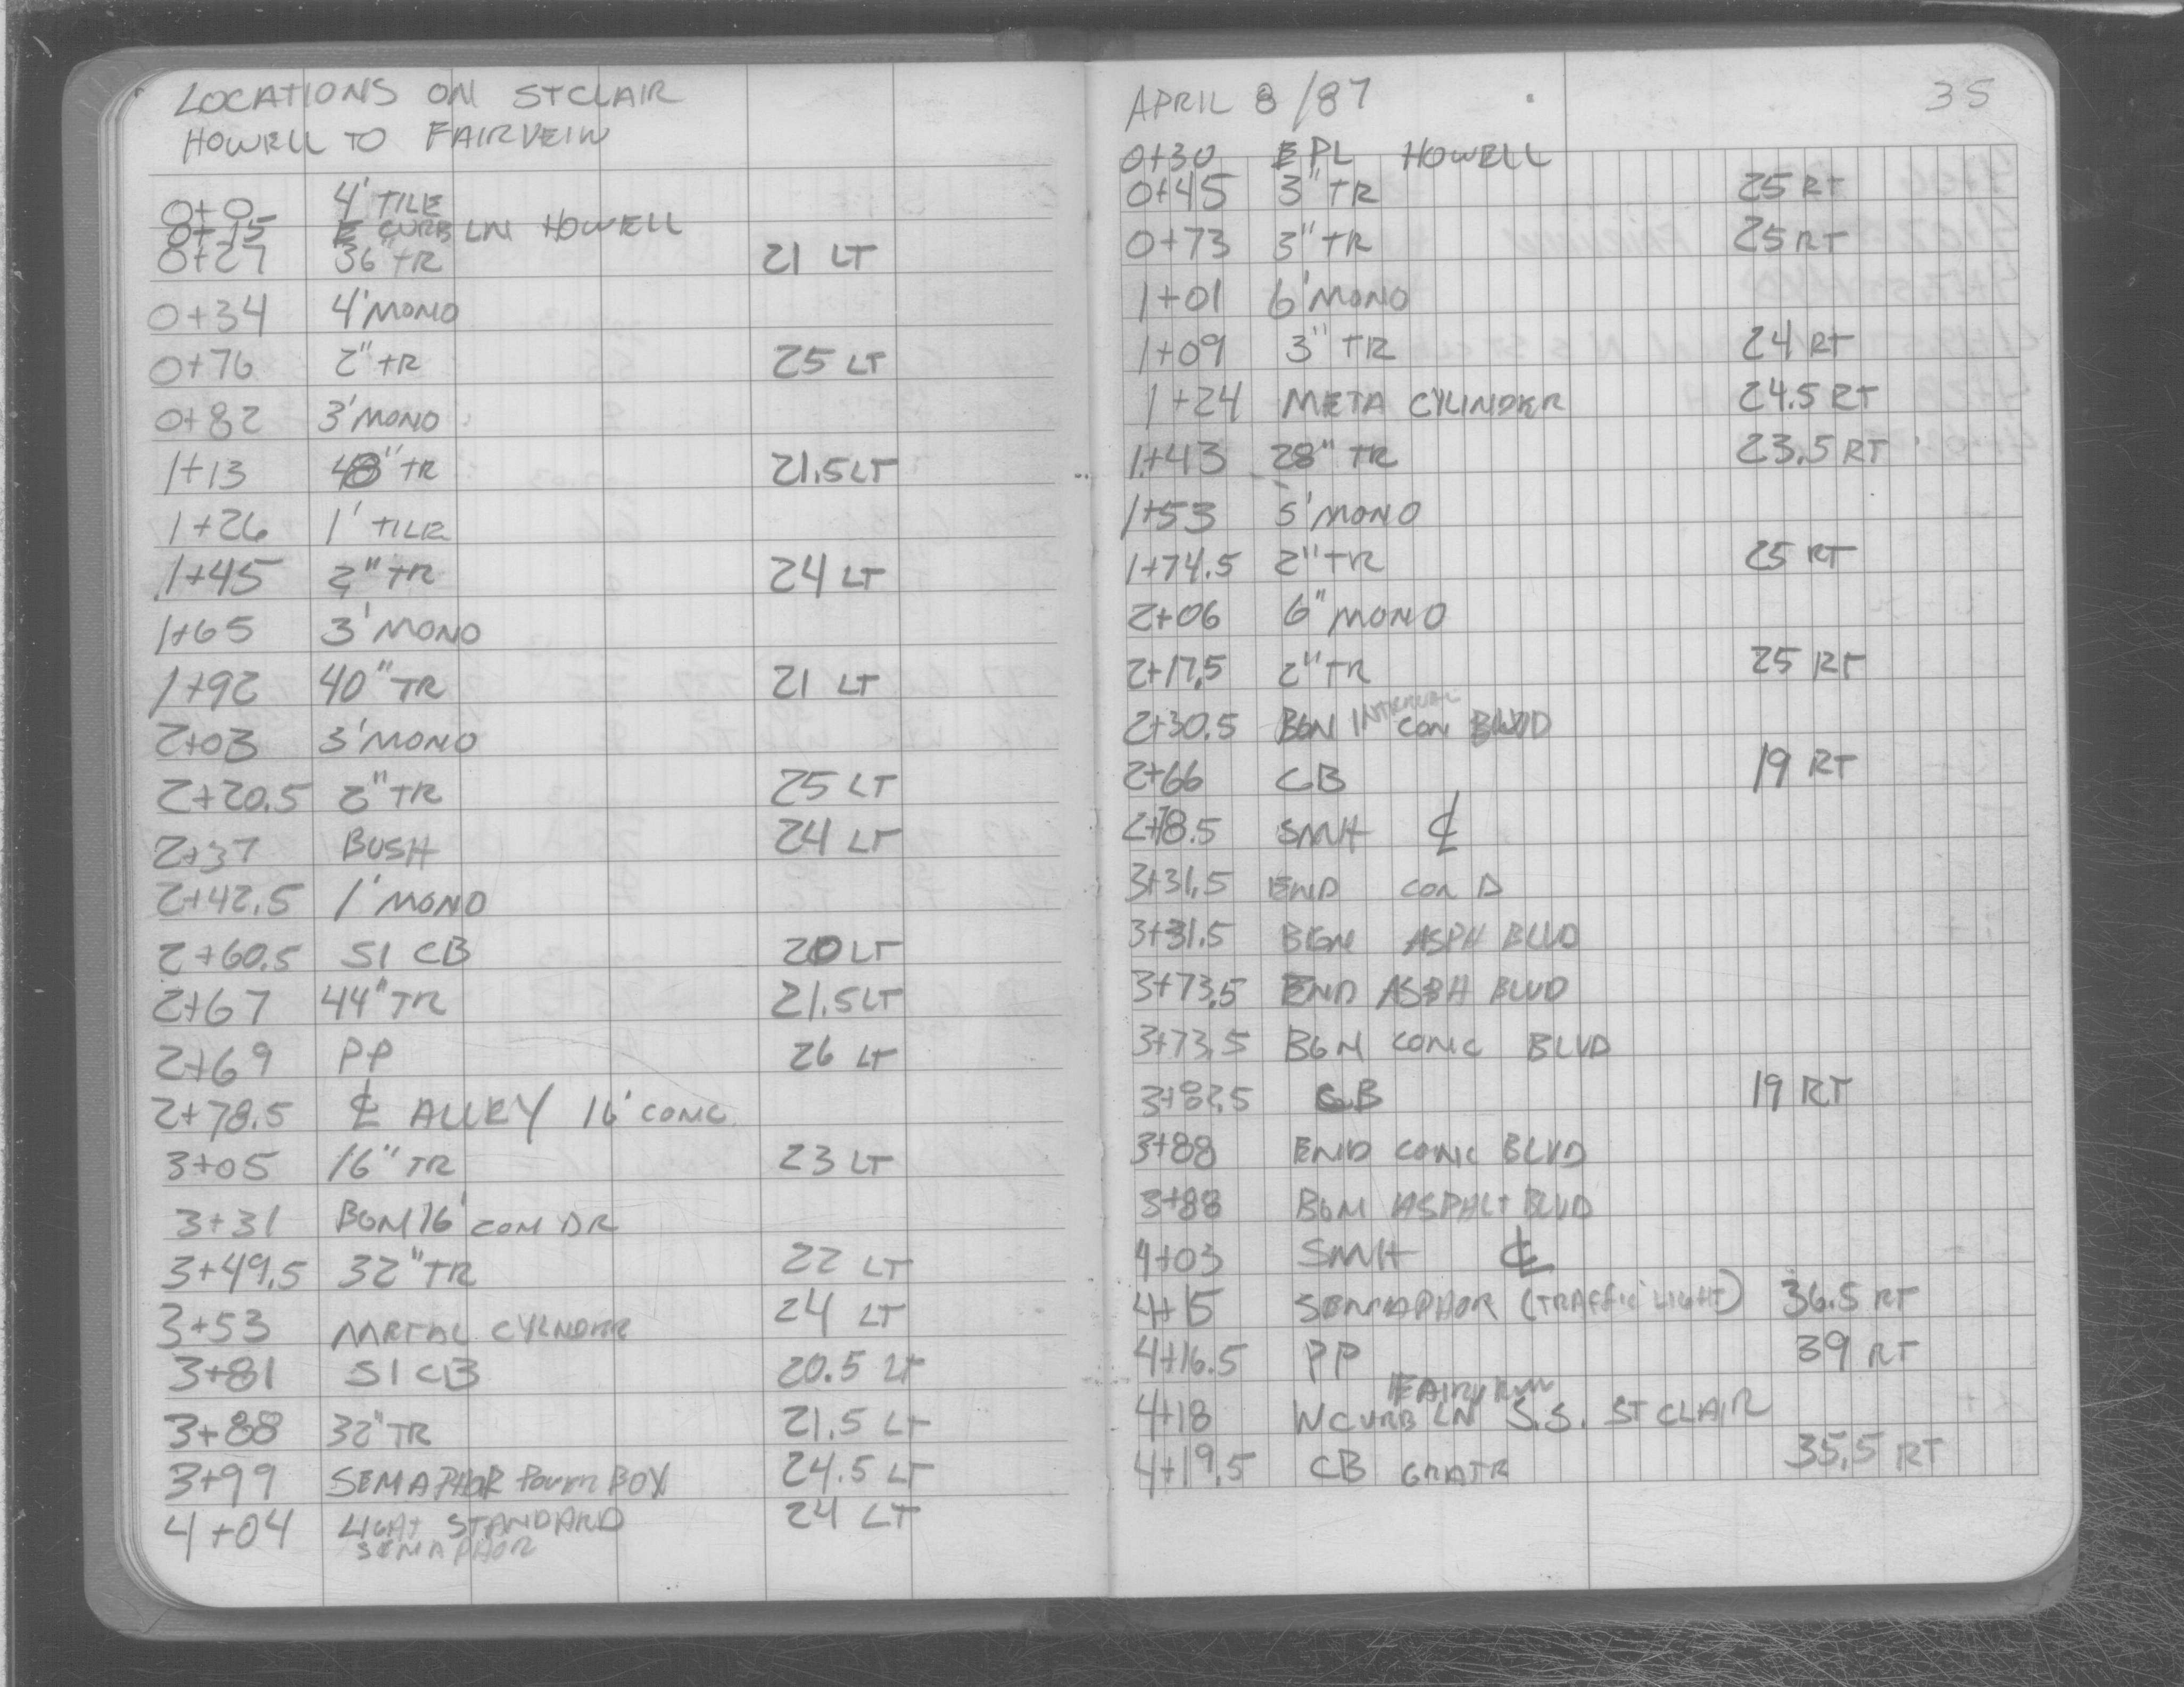 LOCATIONS ON ST CLAIR
HOWELL TO FAIRVEIW
0+0 4' TILE
0+15 E CURB LN HOWELL
0+27 36" TR 21 LT
0+34 4' MONO
0+76 2" TR 25 LT
0+82 3' MONO
1+13 48" TR 21.5 LT
1+26 1' TILE
1+45 2" TR 24 LT
1+65 3' MONO
1+92 40" TR 21 LT
2+03 3' MONO
2+20.5 2" TR 25 LT
2+37 BUSH 24 LT
2+42.5 1' MONO
2+60.5 SI CB 20 LT
2+67 44" TR 21.5 LT
2+69 PP 26 LT
2+78.5 ℄ ALLEY 16' CONC
3+05 16" TR 23 LT
3+31 BGN 16' CON DR
3+49.5 32" TR 22 LT
3+53 METAL CYLNDER 24 LT
3+81 SI CB 20.5 LT
3+88 32" TR 21.5 LT
3+99 SEMAPHOR POWER BOX 24.5 LT
4+04 LIGHT STANDARD 24 LT
SEMAPHOR
APRIL 8/87 35
0+30 E PL HOWELL
0+45 3" TR 25 RT
0+73 3" TR 25 RT
1+01 6' MONO
1+09 3" TR 24 RT
1+24 META CYLINDER 24.5 RT
1+43 28" TR 23.5 RT
1+53 5' MONO
1+74.5 2" TR 25 RT
2+06 6" MONO
2+17.5 2" TR 25 RT
2+30.5 BGN INTEGRAL CON BLVD
2+66 CB 19 RT
2+78.5 SMH ℄
3+31.5 END CON D
3+31.5 BGN ASPH BLVD
3+73.5 END ASPH BLVD
3+73.5 BGN CONC BLVD
3+82.5 CB 19 RT
3+88 END CONC BLVD
3+88 BGN ASPHALT BLVD
4+03 SMH ℄
4+15 SEMAPHOR (TRAFFIC LIGHT) 36.5 RT
4+16.5 PP 39 RT
FAIRVIEW
4+18 W CURB LN S.S. ST CLAIR
4+19.5 CB GRATE 35.5 RT